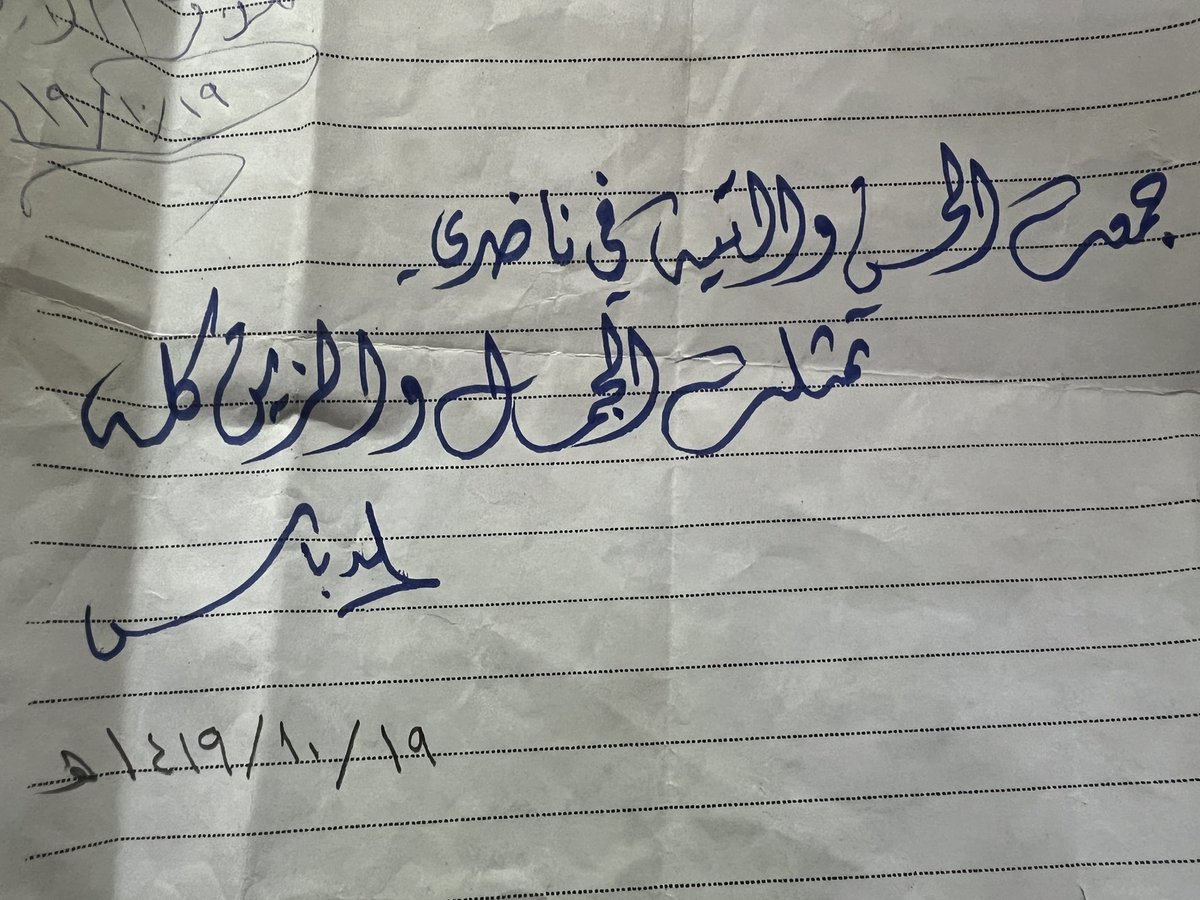 ١٩/١٠/١٩
جمعت الحسن والتيه في ناضري
تمثلت الجمال والزين كله
١٩/١٠/١٤١٩هـ